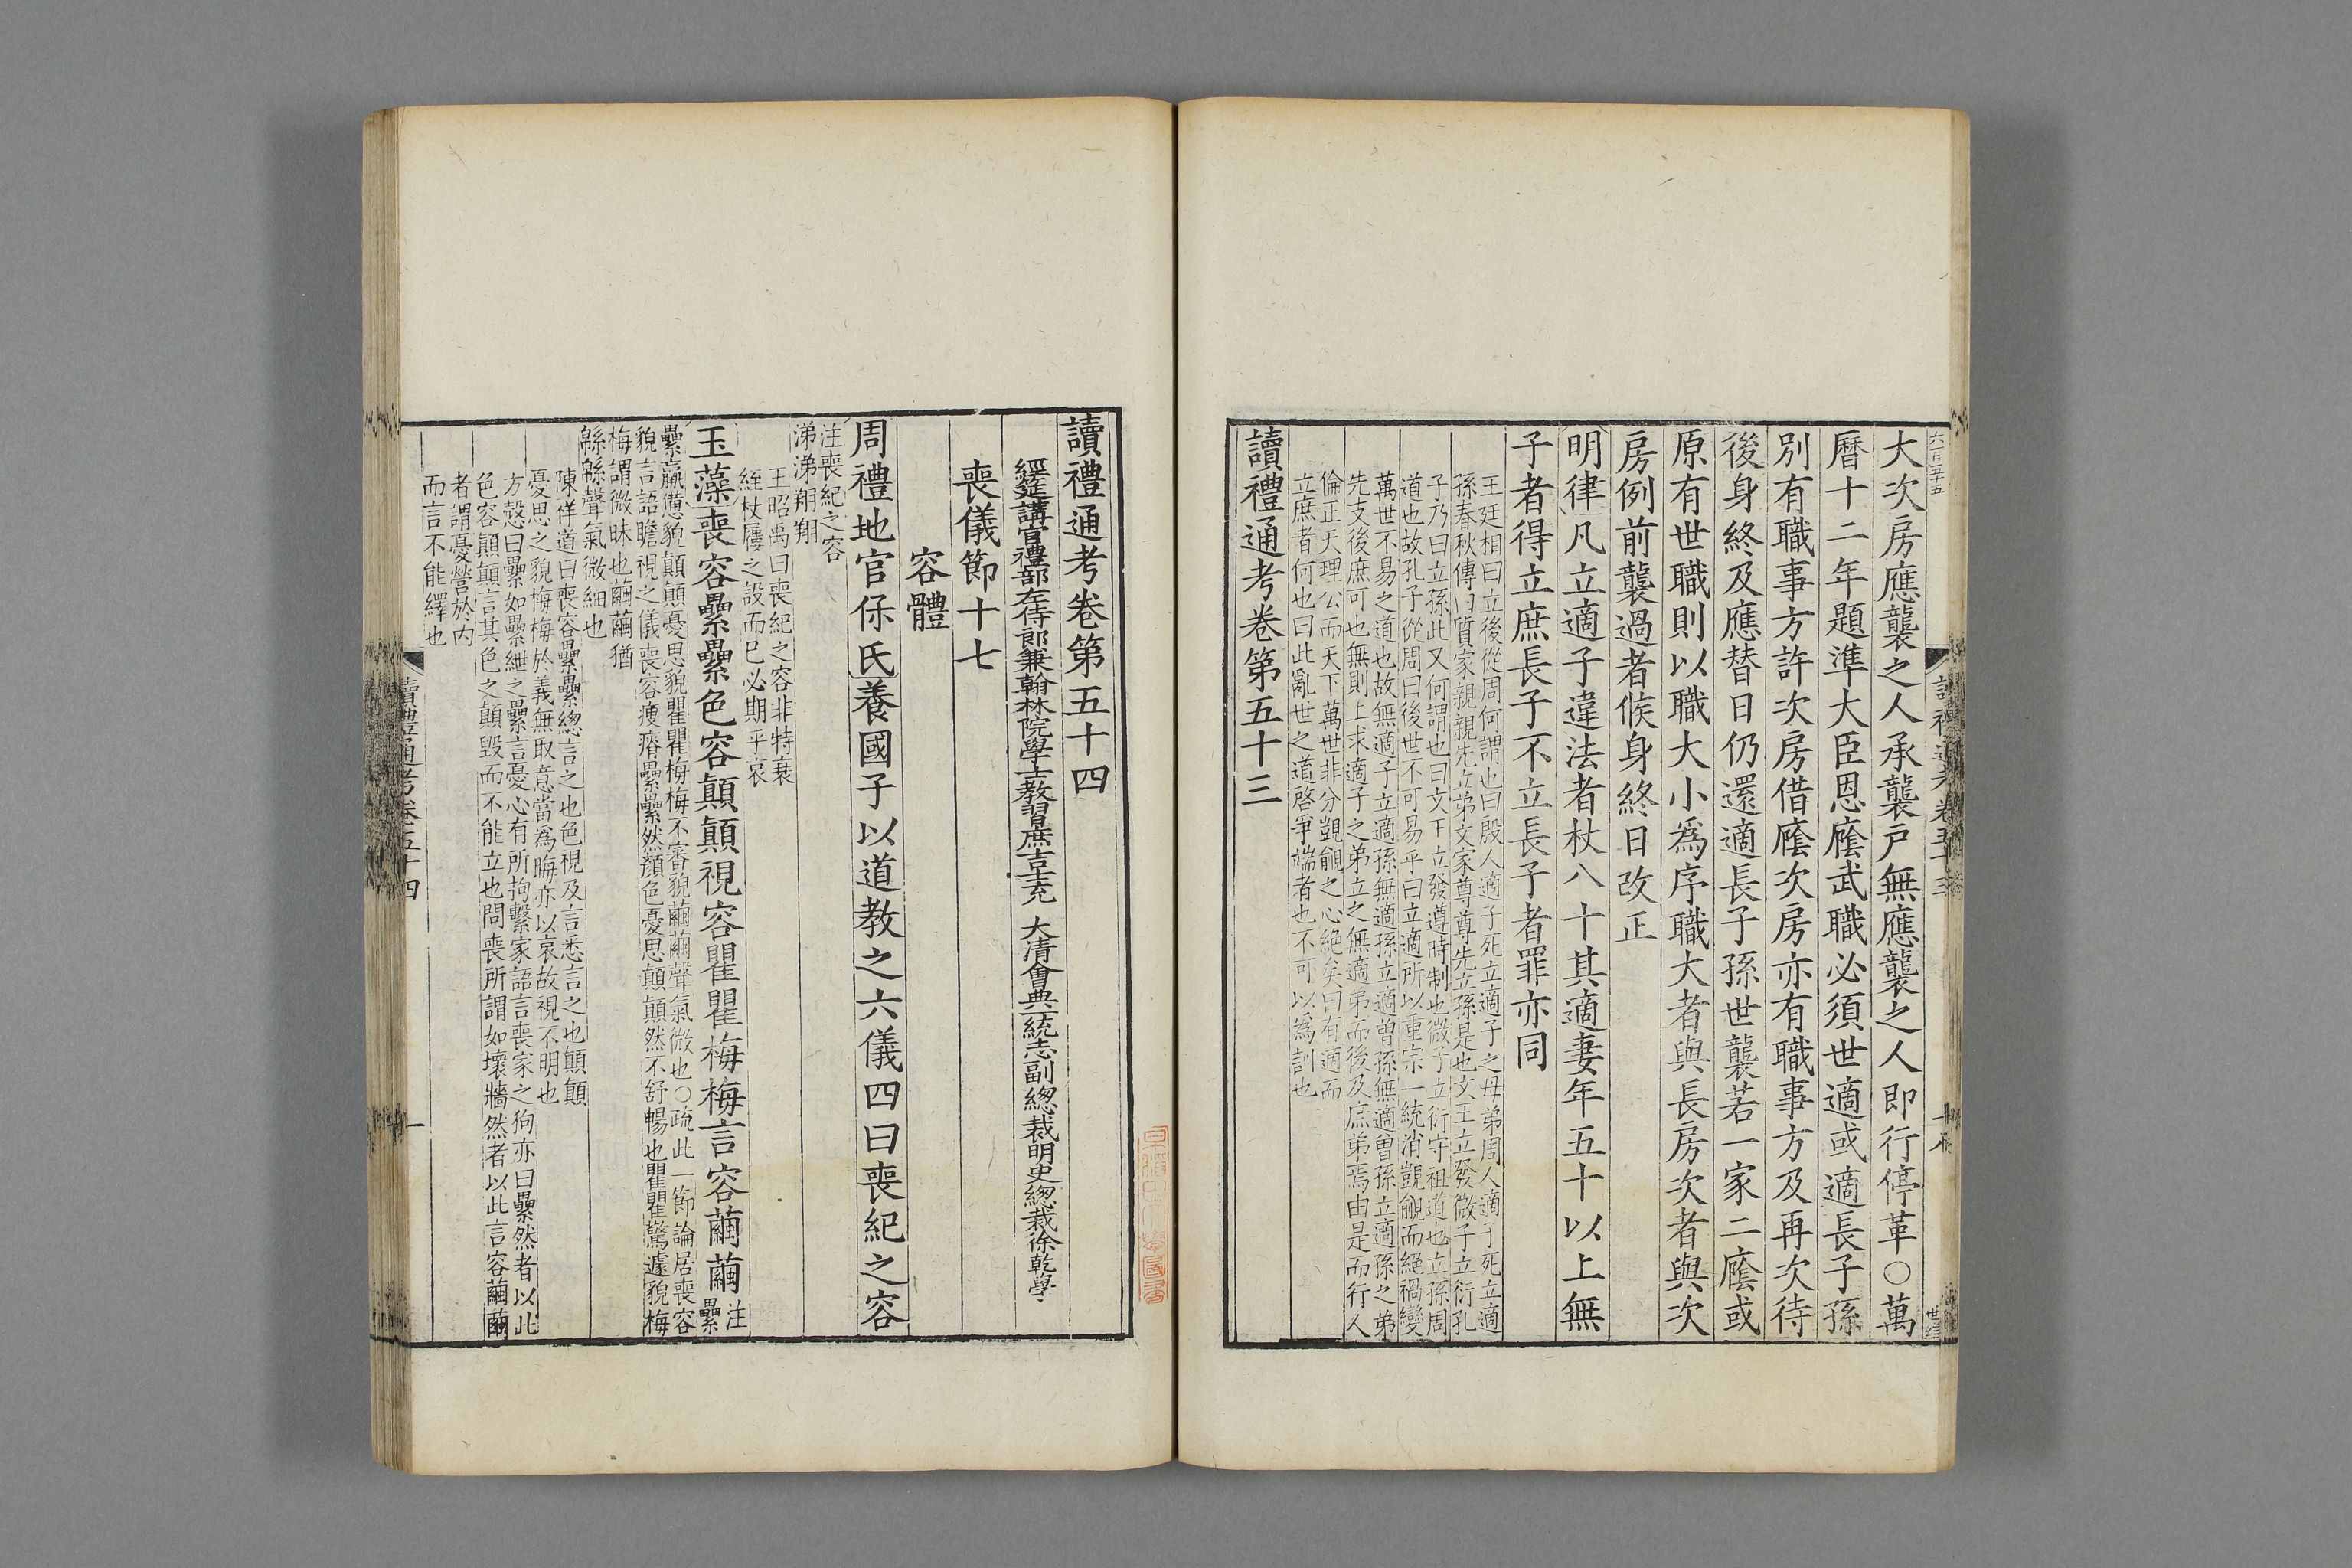 大次房應襲之人承襲戸無應襲之人即行停革○萬
曆十二年題準大臣恩廕武職必須世適或適長子孫
別有職事方許次房借廕次房亦有職事方及再次待
後身終及應替日仍還適長子孫世襲若一家二廕或
原有世職則以職大小爲序職大者與長房次者與次
房例前襲過者候身終日改正
明律凡立適子違法者杖八十其適妻年五十以上無
子者得立庶長子不立長子者罪亦同
王廷相曰立後從周何謂也曰殷人適子死立適子之母弟周人適子死立適
孫春秋傳曰質家親親先立弟文家尊尊先立孫是也文王立發微子立衍孔
子乃曰立孫此又何謂也曰文王立發遵時制也微子立衍守祖道也立孫周
道也故孔子從周曰後世不可易乎曰立適所以重宗一統消覬覦而絕禍變
萬世不易之道也故無適子立適孫無適孫立適曾孫無適曾孫立適孫之弟
先支後庶可也無則上求適子之弟立之無適弟而後及庶弟焉由是而行人
倫正天理公而天下萬世非分覬覦之心絕矣曰有適而
立庶者何也曰此亂世之道啓爭端者也不可以爲訓也
讀禮通考卷第五十三
讀禮通考卷第五十四
經筵講官禮部左侍郎兼翰林院學士教習庶吉士充 大清會典一統志副總裁明史總裁徐乾學
喪儀節十七
容體
周禮地官保氏養國子以道教之六儀四曰喪紀之容
注喪紀之容
涕涕翔翔
王昭禹曰喪紀之容非特衰
絰杖屨之設而已必期乎哀
玉藻喪容纍纍色容顚顚視容瞿瞿梅梅言容繭繭注纍
纍羸憊貌顚顚憂思貌瞿瞿梅梅不審貌繭繭聲氣微也○疏此一節論居喪容
貌言語瞻視之儀喪容瘦瘠纍纍然顏色憂思顚顚然不舒暢也瞿瞿驚遽貌梅
梅謂微昧也繭繭猶
緜緜聲氣微細也
陳祥道曰喪容纍纍總言之也色視及言悉言之也顚顚
憂思之貌梅梅於義無取意當爲晦亦以哀故視不明也
方慤曰纍如纍紲之纍言憂心有所拘繫家語言喪家之狗亦曰纍然者以此
色容顚顚言其色之顚毀而不能立也問喪所謂如壞牆然者以此言容繭繭
者謂憂營於內
而言不能繹也
讀禮通考卷五十四
一